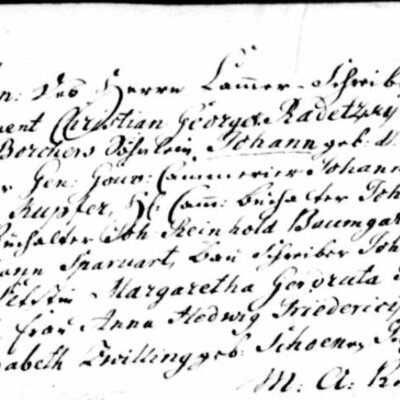 n: des Herrn Cammer-Schreib
ment Christian George Radetzky
Borchers Söhnlein, Johann geb: d.
Gen: Gouv: Cammerier Johann
Kupfer, Cam: Buchalter Joh
Buchalter Joh: Reinhold Baumga
ann Sparwart, Bau Schreiber Joh
Margaretha Gerdruta
Frau Anna Hedwig Friederici
abeth Zwilling geb: Schoener,
M: A: R